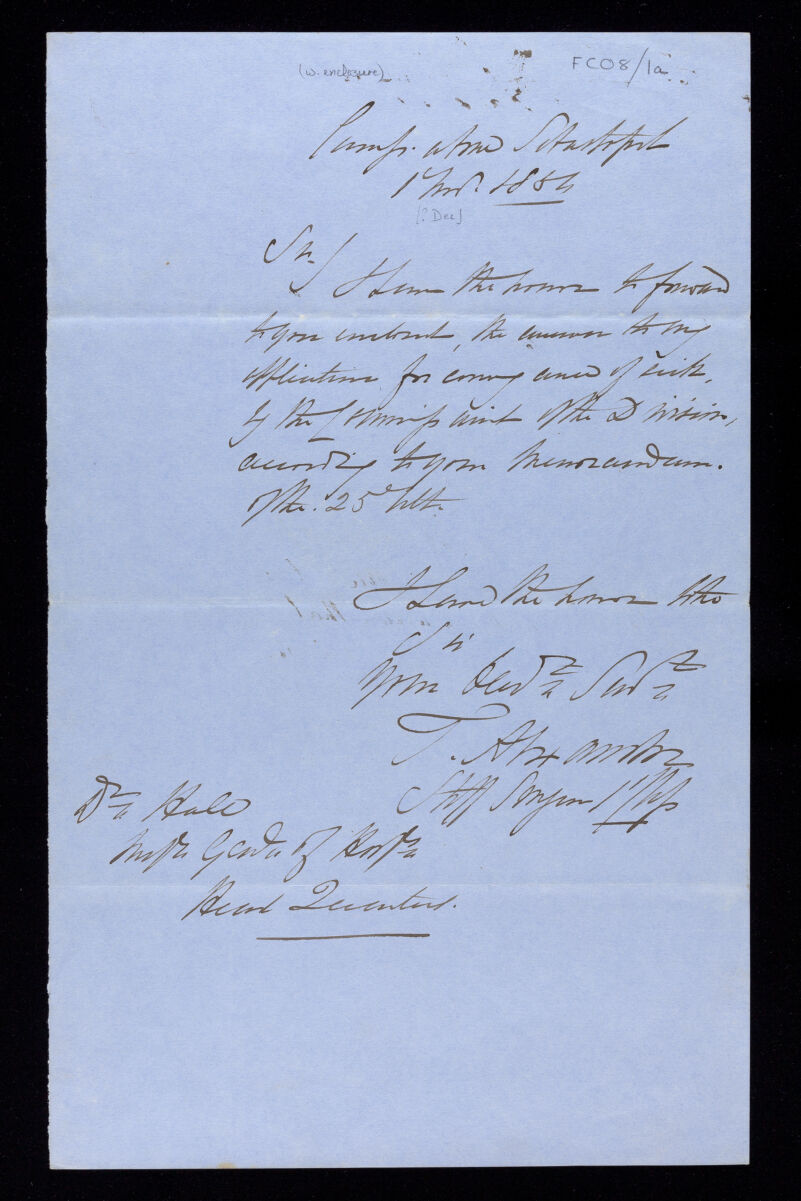 (w. enclosure)
FCO8/1a
Camp. above Sebastopol
1st Novr. 1854
[? Dec]
Sir
I have the honor to forward
to you enclosed, the answer to my
application for conveyance of sick,
by the Commissariat of the Division,
according to your Memorandum.
of the. 25th Ult.
I have the honor to be
Sir
Your Obedt Servt
T. Alexander
Staff Surgeon 1st Class
Dr Hall
Inspr Genl of Hospls
Head Quarters.